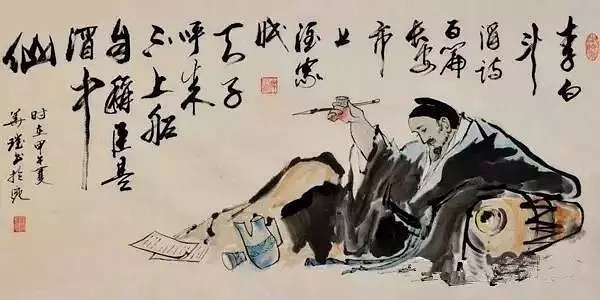 李白
斗
酒诗
百篇
长安
市
上
酒家
眠
天子
呼来
不上船
自称臣是
酒中
仙
时在甲午夏